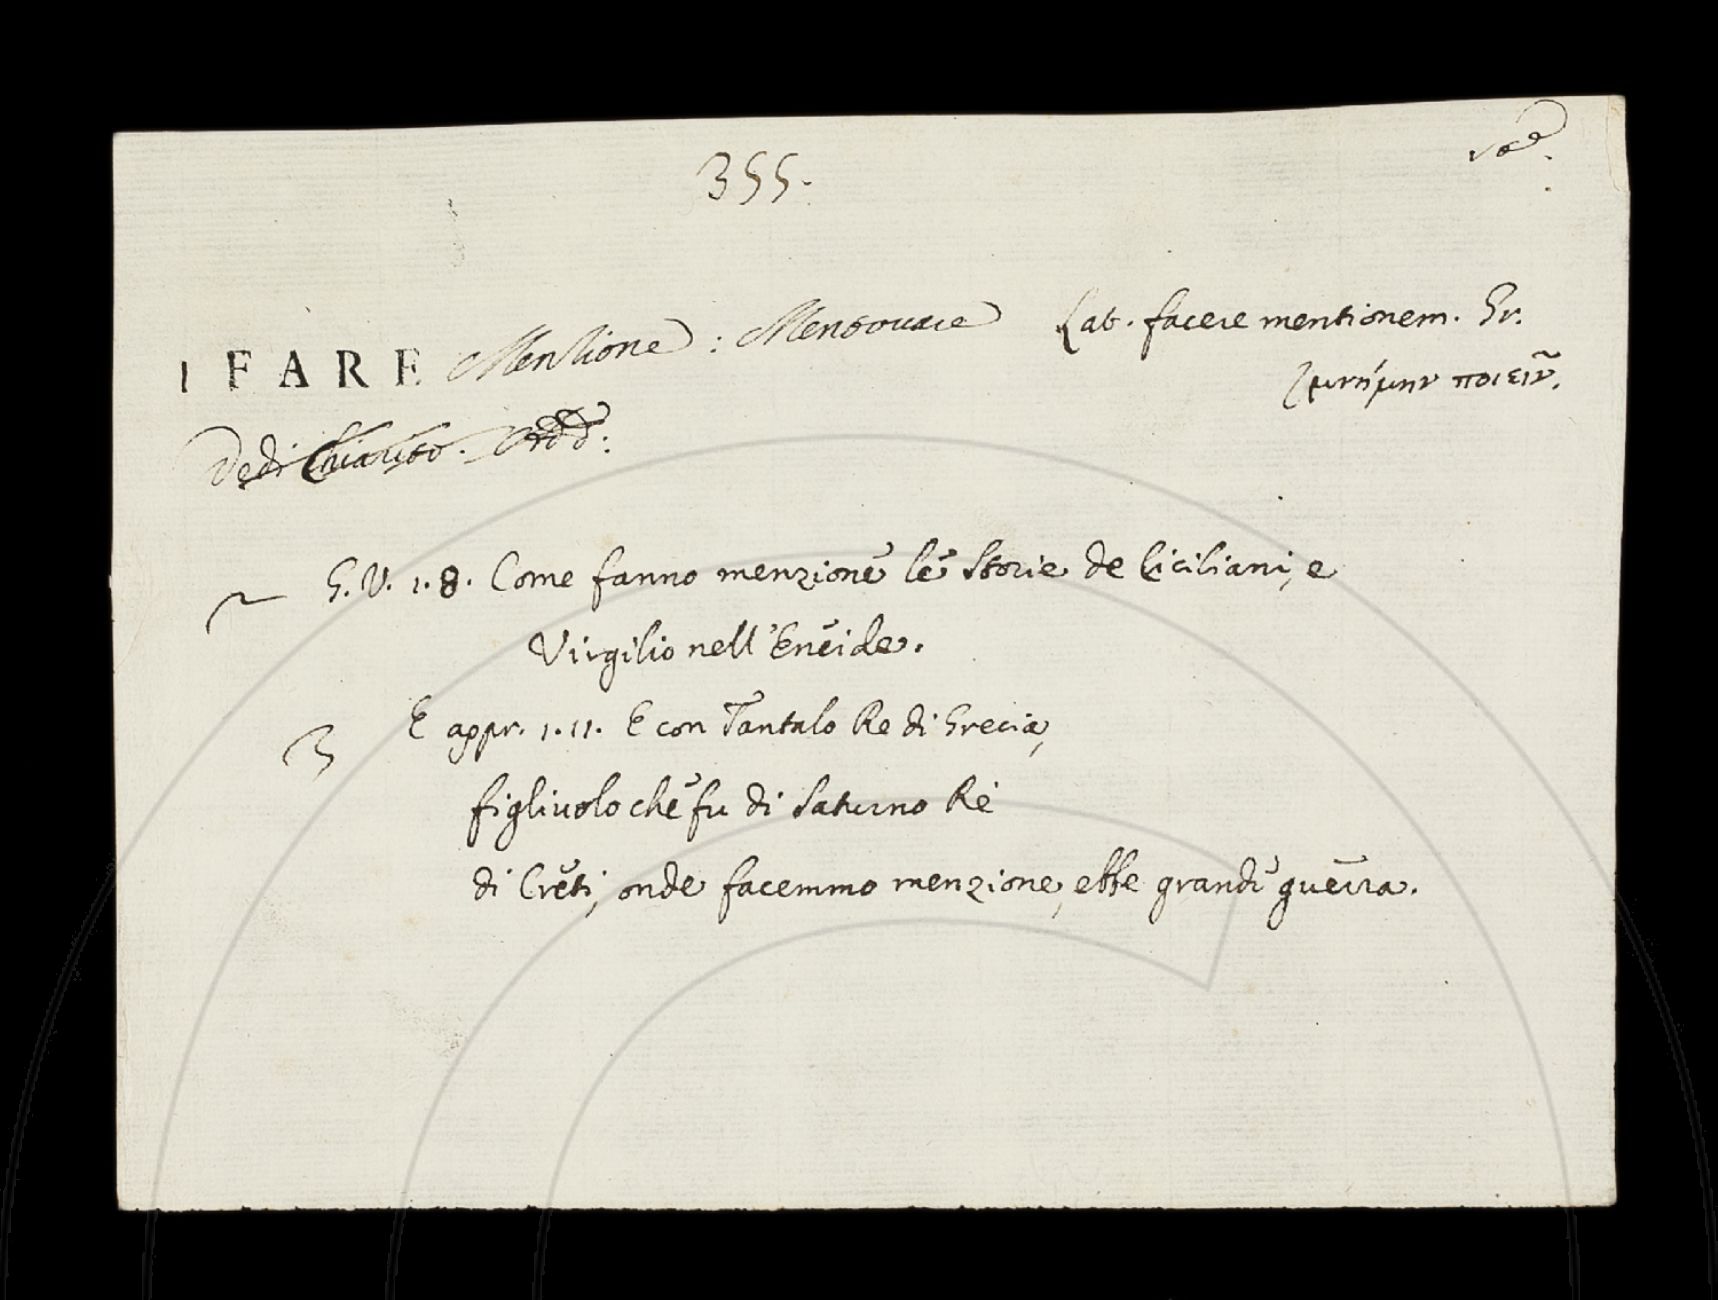 355.
1 FARE Menzione : Mentouare Lat. facere mentionem. Gr.
μνήμην ποιεῖν.
Vedi
2 G. V. 1. 8. Come fanno menzione le Storie de Ciciliani, e
Virgilio nell'Eneide.
3 E appr. 1. 11. E con Tantalo Re di Grecia,
figliuolo che fu di Saturno Re
di Creti, onde facemmo menzione, ebbe grande guerra.